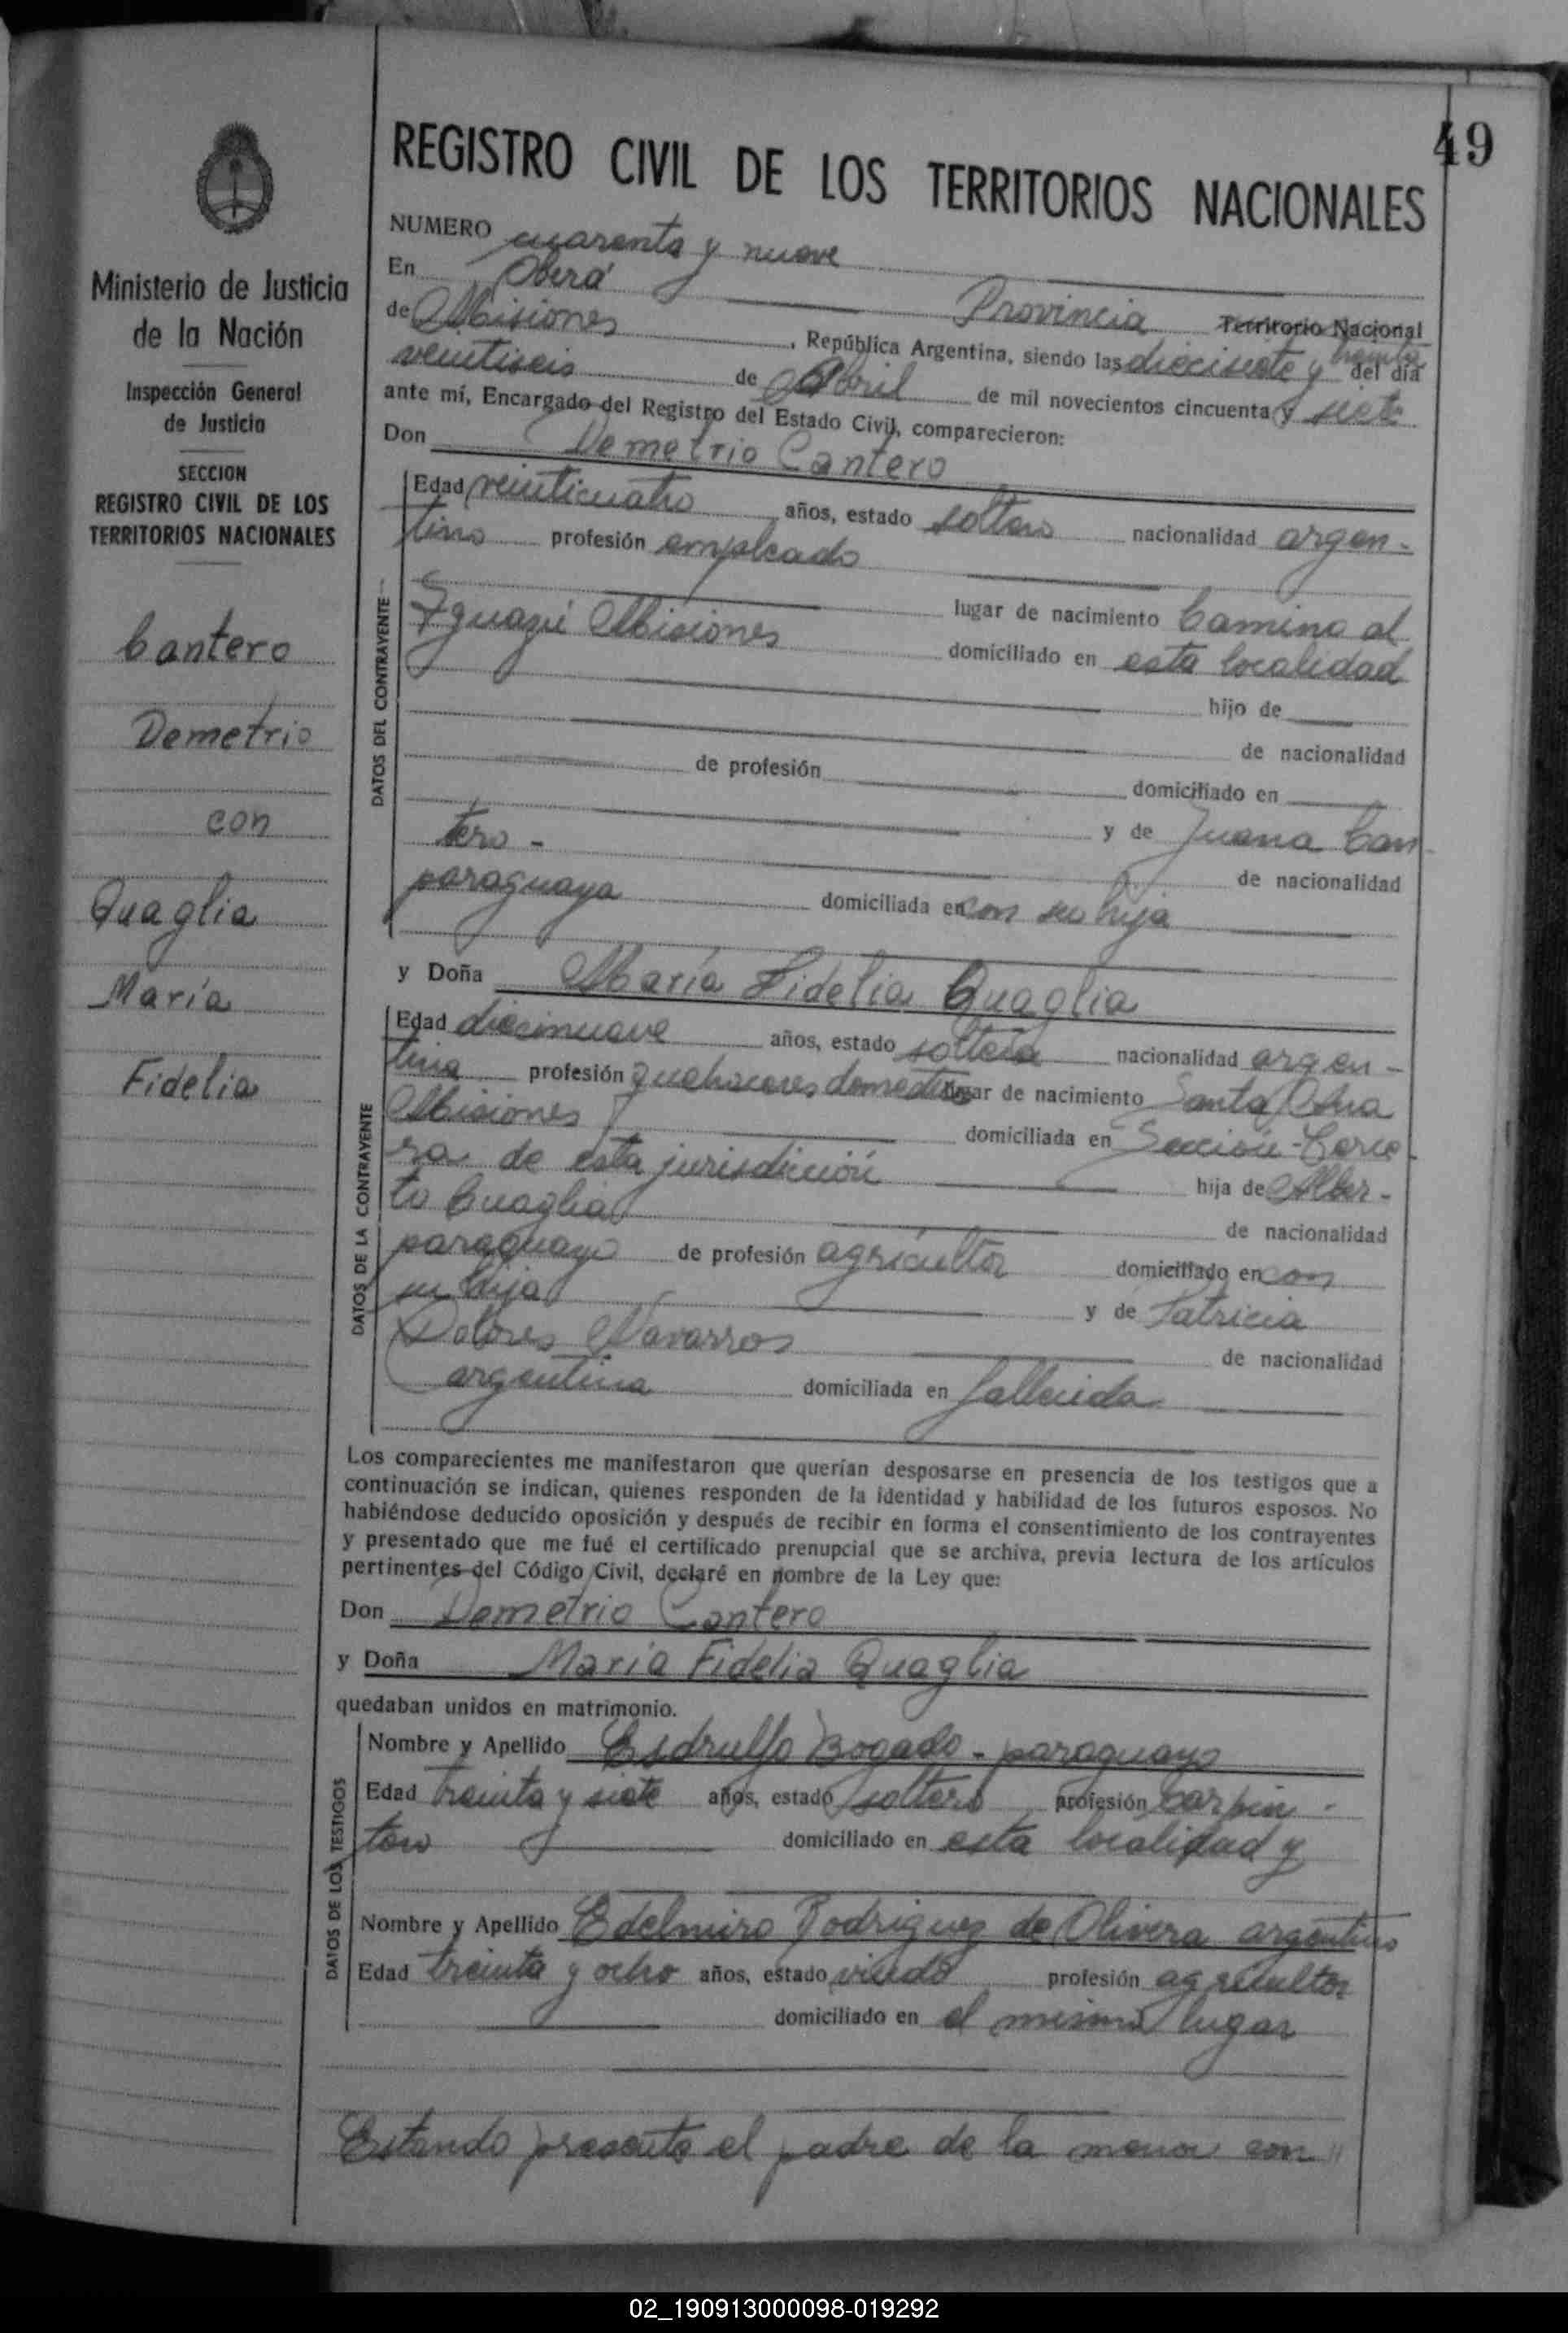 49
REGISTRO CIVIL DE LOS TERRITORIOS NACIONALES
Ministerio de Justicia
de la Nación
Inspección General
de Justicia
SECCION
REGISTRO CIVIL DE LOS
TERRITORIOS NACIONALES
Cantero
Demetrio
con
Quaglia
María
Fidelia
NUMERO cuarenta y nueve
En Oberá Provincia Territorio Nacional
de Misiones, República Argentina, siendo las diecisiete y treinta del día
veintiseis de Abril de mil novecientos cincuenta y siete
ante mí, Encargado del Registro del Estado Civil, comparecieron:
Don Demetrio Cantero
DATOS DEL CONTRAYENTE
Edad veinticuatro años, estado soltero nacionalidad argen-
tino profesión empleado
lugar de nacimiento Camino al
Yguazú Misiones domiciliado en esta localidad
hijo de
de nacionalidad
de profesión domiciliado en
y de Juana Can-
tero - de nacionalidad
paraguaya domiciliada en con su hija
y Doña María Fidelia Quaglia
DATOS DE LA CONTRAYENTE
Edad diecinueve años, estado soltera nacionalidad argen-
tina profesión quehaceres domesticos lugar de nacimiento Santa Ana
Misiones domiciliada en Sección
ra de esta jurisdicción hija de Alber-
to Quaglia de nacionalidad
paraguayo de profesión agricultor domiciliado en con
su hija y de Patricia
Dolores Navarros de nacionalidad
argentina domiciliada en fallecida
Los comparecientes me manifestaron que querían desposarse en presencia de los testigos que a
continuación se indican, quienes responden de la identidad y habilidad de los futuros esposos. No
habiéndose deducido oposición y después de recibir en forma el consentimiento de los contrayentes
y presentado que me fué el certificado prenupcial que se archiva, previa lectura de los artículos
pertinentes del Código Civil, declaré en nombre de la Ley que:
Don Demetrio Cantero
y Doña María Fidelia Quaglia
quedaban unidos en matrimonio.
DATOS DE LOS TESTIGOS
Nombre y Apellido Esdrulfo Bogado - paraguayo
Edad treinta y siete años, estado soltero profesión carpin-
tero domiciliado en esta localidad y
Nombre y Apellido Edelmiro Rodriguez de Olivera argentino
Edad treinta y ocho años, estado viudo profesión agricultor
domiciliado en el mismo lugar
Estando presente el padre de la menor con"
02_190913000098-019292